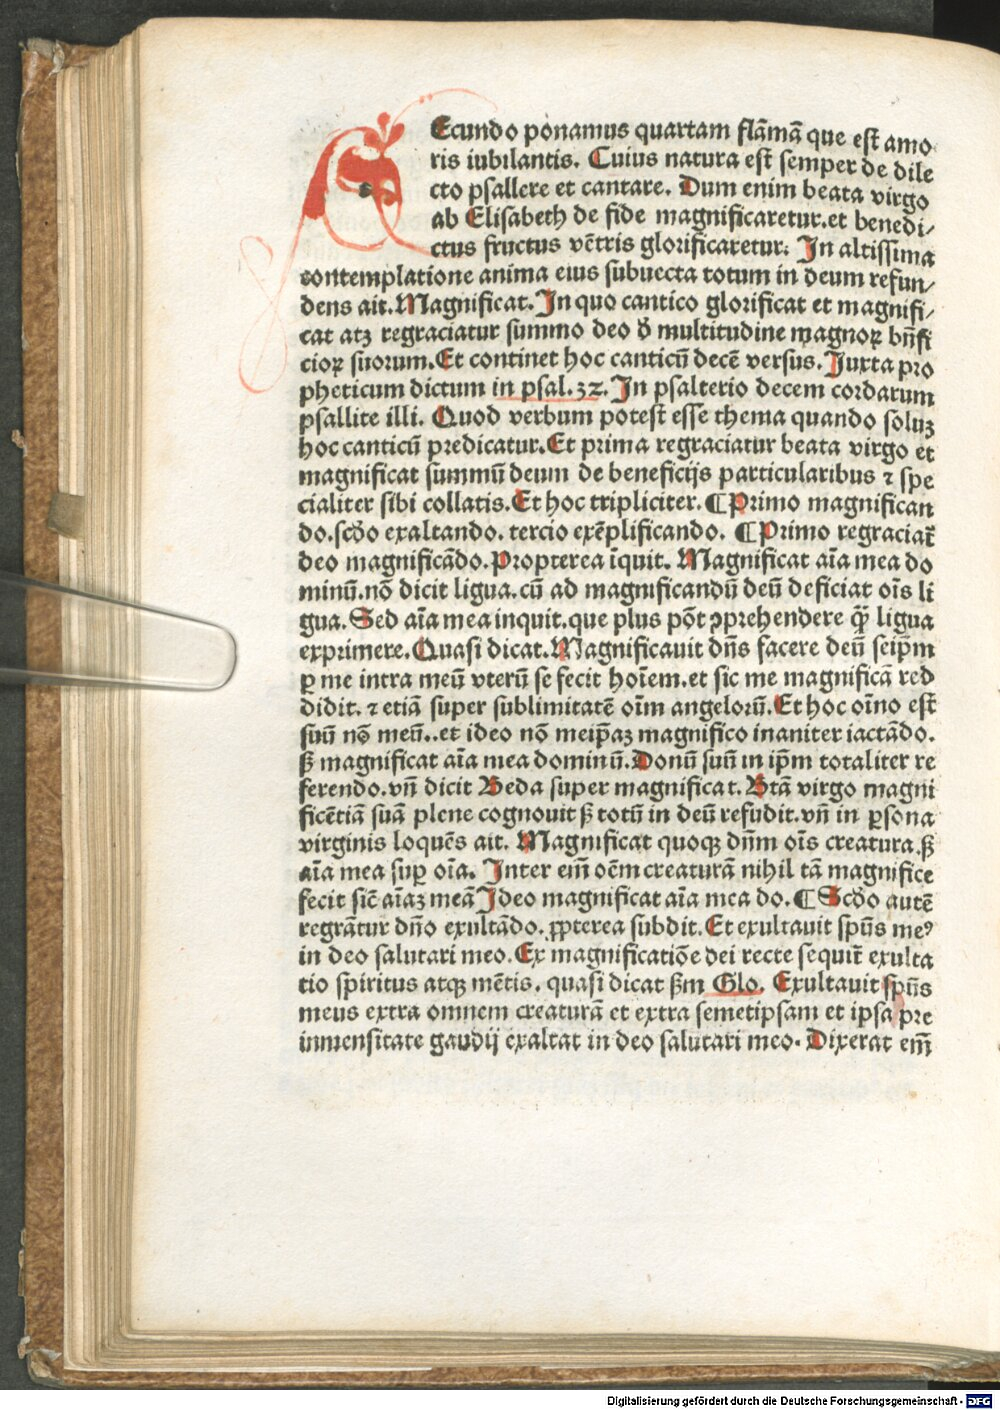 Ecundo ponamus quartam flāmā que est amo
ris iubilantis. Cuius natura est semper de dile
cto psallere et cantare. Dum enim beata virgo
ab Elisabeth de fide magnificaretur.et benedi⸗
ctus fructus vētris glorificaretur. In altissima
contemplatione anima eius subuecta totum in deum refun⸗
dens ait.Magnificat.In quo cantico glorificat et magnifi⸗
cat atꝫ regraciatur summo deo đ multitudine magnoꝝ bñfi
cioꝝ suorum.Et continet hoc canticū decē versus.Juxta pro
pheticum dictum in psal.32.In psalterio decem cordarum
psallite illi. Quod verbum potest esse thema quando soluꝫ
hoc canticū predicatur.Et prima regraciatur beata virgo et
magnificat summū deum de beneficijs particularibus ⁊ spe
cialiter sibi collatis.Et hoc tripliciter.¶Primo magnifican
do.scđo exaltando. tercio exēplificando. ¶Primo regraciať
deo magnificādo.Propterea īquit. Magnificat aīa mea do
minū.nō dicit ligua.cū ad magnificandū deū deficiat oīs li
gua.Sed aīa mea inquit.que plus pōt ꝯprehendere q̄ꝫ ligua
exprimere.Quasi dicat.Magnificauit dñs facere deū seip̄m
ꝑ me intra meū vterū se fecit hoīem.et sic me magnificā red
didit. ⁊ etiā super sublimitatē oīm angelorū.Et hoc oīno est
suū nō meū..et ideo nō meip̄aꝫ magnifico inaniter iactādo.
sꝫ magnificat aīa mea dominū.Donū suū in ip̄m totaliter re
ferendo.vñ dicit Beda super magnificat.Btā virgo magni
ficētiā suā plene cognouit sꝫ totū in deū refudit.vñ in ꝑsona
virginis loquēs ait. Magnificat quoqꝫ dñm oīs creatura.sꝫ
aīa mea suꝑ oīa. Inter em̄ oēm creaturā nihil tā magnifice
fecit sic̄ aīaꝫ meā Ideo magnificat aīa mea do.¶Scđo autē
regrātur dño exultādo. ꝓpterea subdit.Et exultauit sp̄us meꝰ
in deo salutari meo.Ex magnificatiōe dei recte sequit̄ exulta
tio spiritus atqꝫ mētis. quasi dicat sꝫm Glo. Exultauit sp̄us
meus extra omnem creaturā et extra semetipsam et ipsa pre
inmensitate gaudij exaltat in deo salutari meo. Dixerat em̄
Digitalisierung gefördert durch die Deutsche Forschungsgemeinschaft - DFG